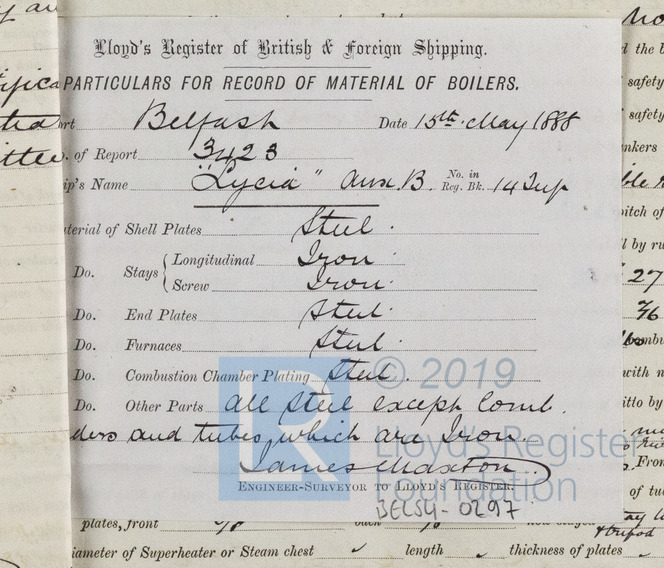 Lloyd's Register of British & Foreign Shipping.
PARTICULARS FOR RECORD OF MATERIAL OF BOILERS.
ort Belfast Date 15th May 1888
o. of Report 3423
ip's Name "Lycia" Aux. B. No. in Reg. Bk. 14 Sup
terial of Shell Plates Steel.
Do. Stays { Longitudinal Iron
Screw Iron.
Do. End Plates Steel.
Do. Furnaces Steel.
Do. Combustion Chamber Plating Steel.
Do. Other Parts all steel except Comb.
ders and tubes, which are Iron.
James Maxton.
ENGINEER-SURVEYOR TO LLOYD'S REGISTER.
BEL54-0297
© 2019
Lloyd's Register
Foundation
plates, front
iameter of Superheater or Steam chest length thickness of plates
d the b
safety
safety
nkers
pitch of
l by ru
27
with n
itto by
Fron
of tu